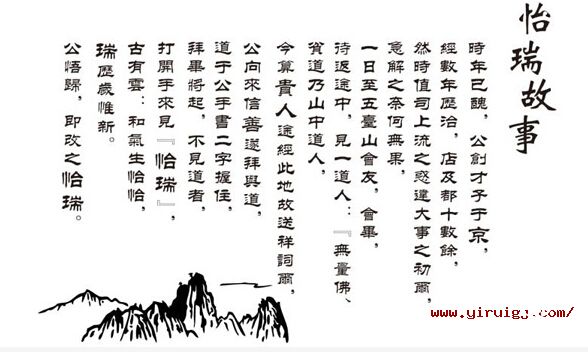 怡瑞故事
時年己醜，公創才子于京，
經數年歷治，店及都十數餘，
然時值司上流之惑違大事之初爾，
意解之奈何無果，
一日至五臺山會友，會畢，
待返途中，見一道人：『無量佛、
貧道乃山中道人，
今算貴人途經此地故送祥詞爾，
公向來信善遂拜與道，
道于公手書二字握住，
拜畢將起，不見道者，
打開手來見『怡瑞』，
古有雲：和氣生怡怡，
瑞歷歲惟新。
公悟歸，即改之怡瑞。
www.yiruigj.com/